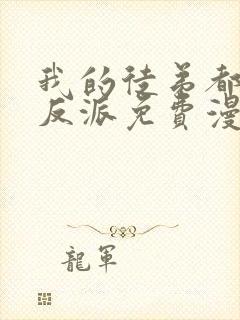 我的徒弟都
反派免費漫
龍軍